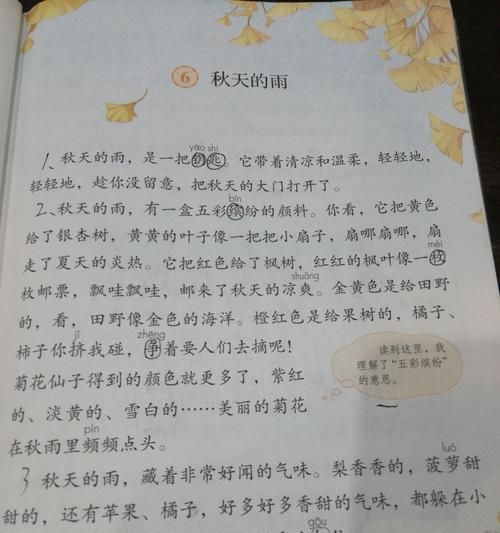 6 秋天的雨
yào shi
1、秋天的雨，是一把钥匙。它带着清凉和温柔，轻轻地，
轻轻地，趁你没留意，把秋天的大门打开了。
bīn
2、秋天的雨，有一盒五彩缤纷的颜料。你看，它把黄色
给了银杏树，黄黄的叶子像一把把小扇子，扇哪扇哪，扇
méi
走了夏天的炎热。它把红色给了枫树，红红的枫叶像一枚
shuāng
枚邮票，飘哇飘哇，邮来了秋天的凉爽。金黄色是给田野
的，看，田野像金色的海洋。橙红色是给果树的，橘子、
jǐ zhēng
柿子你挤我碰，争着要人们去摘呢！
菊花仙子得到的颜色就更多了，紫红
的、淡黄的、雪白的……美丽的菊花
pín
在秋雨里频频点头。
读到这里，我
理解了“五彩缤纷”
的意思。
luó
3 秋天的雨，藏着非常好闻的气味。梨香香的，菠萝甜
甜的，还有苹果、橘子，好多好多香甜的气味，都躲在小
gōu